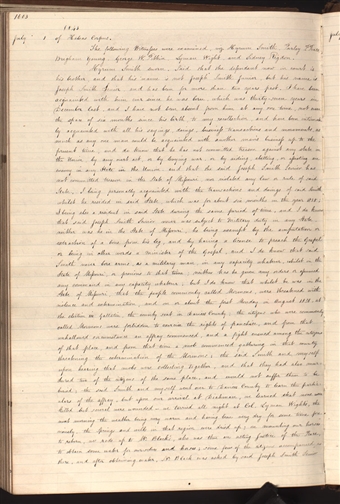 1843
July 1 of Habeas Corpus.
The following witnesses were examined, viz. Hyrum Smith, Parley P. Pratt,
Brigham Young, George W. Pitkin, Lyman Wight, and Sidney Rigdon.
Hyrum Smith sworn, Said that the defendant now in court is
his brother, and that his name is not Joseph Smith Junior, but his name is
Joseph Smith Senior, and has been for more than two years past. I have been
acquainted with him ever since he was born, which was thirty seven years in
December last, and I have not been absent from him at any one time, not even
the space of six months since his birth, to my recollection, and have been intimately
acquainted with all his sayings, doings, business transactions and movements, as
much as any one man could be acquainted with another man's business up to the
present time, and do know that he has not committed treason against any state in
the Union, by any overt act, or by levying war, or by aiding, abetting or assisting an
enemy in any State in the Union. and that the said Joseph Smith Senior has
not committed treason in the State of Missouri, nor violated any law or rule of said
State, I being personally acquainted with the transactions and doings of said Smith
whilst he resided in said State, which was for about six months in the year 1838.
I being also a resident in said State during the same period of time. and I do know
that said Joseph Smith Senior never was subject to military duty in any State,
neither was he in the State of Missouri, he being exempt by the amputation or
extraction of a bone from his leg, and by his having a license to preach the Gospel,
or being in other words a minister of the Gospel. and I do know that said
Smith never bore arms, as a military man, in any capacity whatever, whilst in the
State of Missouri, or previous to that time; neither has he given any orders or assumed
any command in any capacity whatever; but I do know that whilst he was in the
State of Missouri, that the people commonly called Mormons, were threatened with
violence and extermination. and on or about the first Monday in August 1838, at
the election in Gallatin, the county seat in Daviess County; the citizens who were commonly
called Mormons were forbidden to exercise the rights of franchise, and from that
unhallowed circumstance an affray commenced, and a fight ensued among the citizens
of that place. and from that time a mob commenced gathering in that county
threatening the extermination of the Mormons; the said Smith and myself
upon hearing that mobs were collecting together, and that they had also mur-
dered two of the citizens of the same place, and would not suffer them to be
buried; the said Smith and myself went over to Daviess County to learn the particu-
lars of the affray. but upon our arrival at Diahman, we learned that none were
killed but several were wounded. we tarried all night at Col. Lyman Wight's. the
next morning the weather being very warm and having been very dry for some time pre-
viously, the springs and wells in that region were dried up. on mounting our horses
to return, we rode up to Mr. Black's, who was then an acting Justice of the Peace,
to obtain some water for ourselves and horses, some few of the citizens accompanied us
there; and after obtaining water, Mr. Black was asked by said Joseph Smith Senior